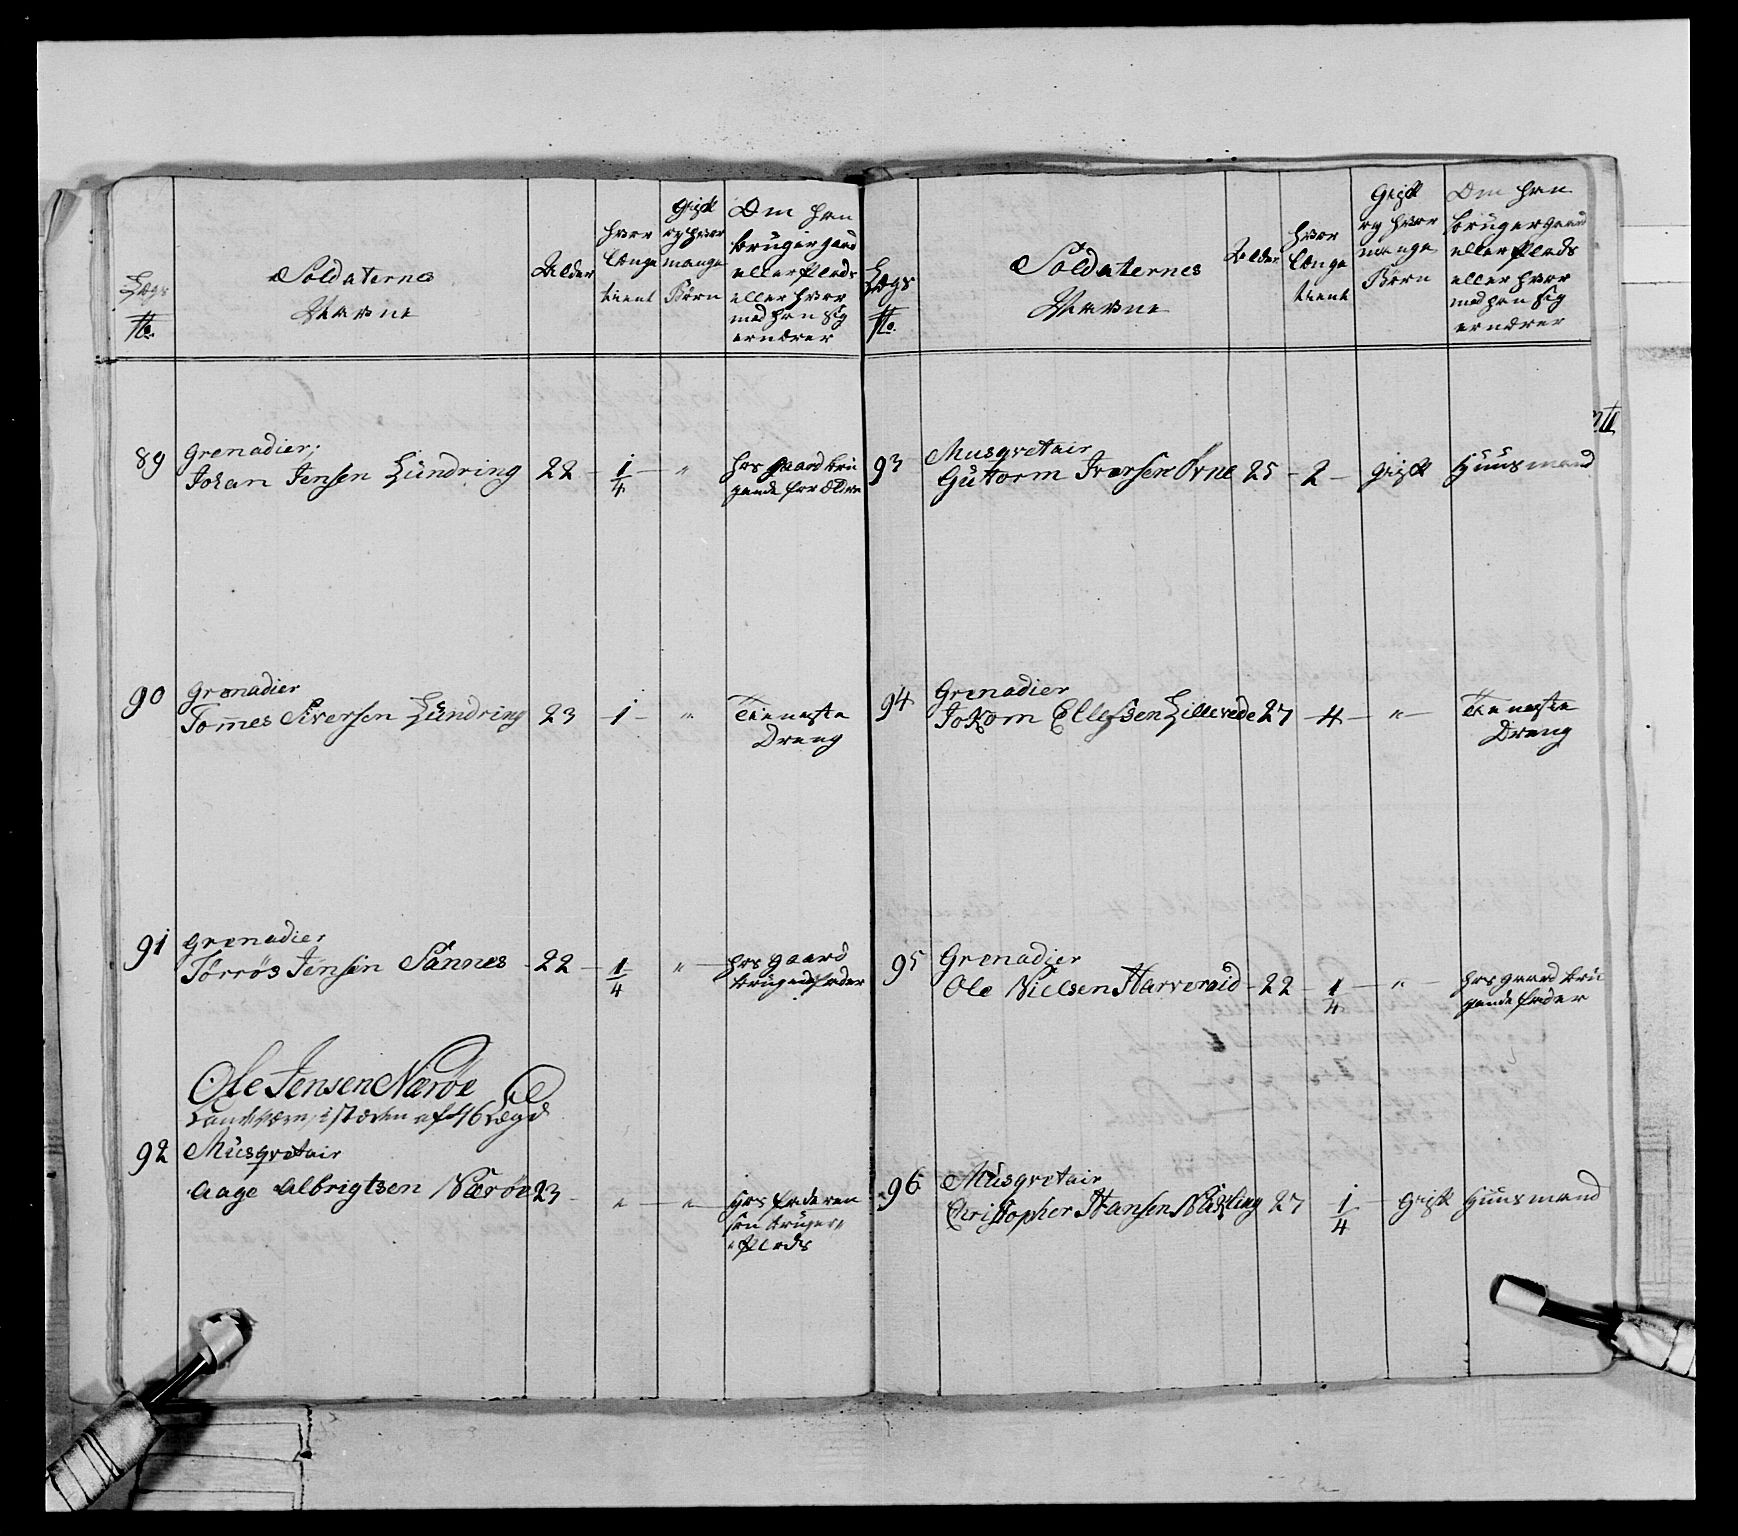 Lægs
No.
Soldaternes
Navne
Alder
hvor
længe
tient
Gift
og hvor
mange
Børn
Om han
bruger gaard
eller Plads
eller hvor
med han sig
ernærer
89
Grenadier
Johan Jensen Lündring
22
1/4
"
hos gaard brü
gende forældre
90
Grenadier
Tom̄es Siversen Lündring
23
1
"
Tieneste
Dreng
91
Grenadier
Torrös Jensen Sannes
22
1/4
"
hos gaard
brügende fader
Ole Jensen Nærøe
Landværn, i stæden af 46 Lægd
92
Müsqvetair
Aage Albrigtsen Nærøe
23
"
"
hos faderen
som brüger
Plads
Lægs
No.
Soldaternes
Navne
Alder
hvor
længe
tient
Gift
og hvor
mange
Børn
Om han
brüger gaard
eller Plads
eller hvor
med han sig
ernærer
93
Musqvetair
Güttorm Iversen Ovne
25
2
gift
Huusmand
94
Grenadier
Jokom Ellefsen Lillevede
27
4
"
Tieneste
Dreng
95
Grenadier
Ole Nielsen Harveraid
22
1/4
"
hos gaard brü
gende fader
96
Müsqvetair
Christopher Hansen
27
1/4
gift
Huusmand